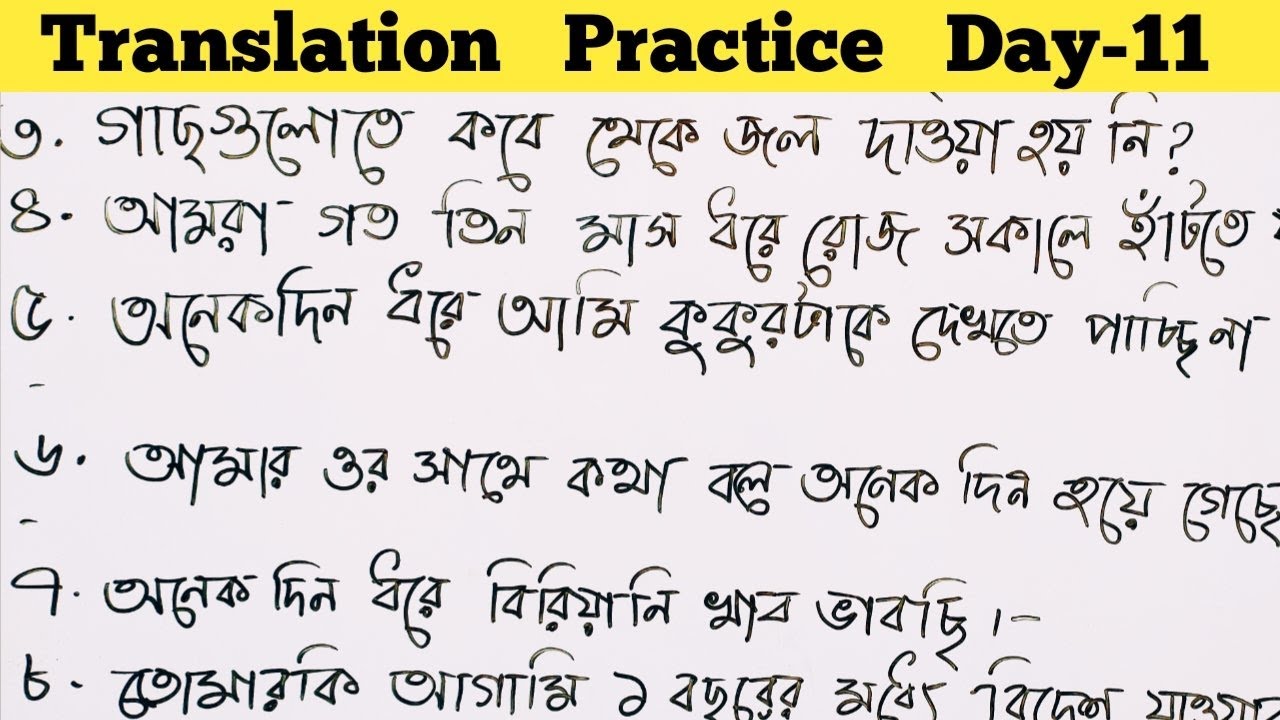 Translation Practice Day-11
৩. গাছগুলোতে কবে থেকে জল দাওয়া হয় নি?
৪. আমরা গত তিন মাস ধরে রোজ সকালে হাঁটতে
৫. অনেকদিন ধরে আমি কুকুরটাকে দেখতে পাচ্ছিনা
৬. আমার ওর সাথে কথা বলে অনেক দিন হয়ে গেছে
৭. অনেক দিন ধরে বিরিয়ানি খাব ভাবছি।-
৮. তোমারকি আগামি ১ বছরের মধ্যে বিদেশ